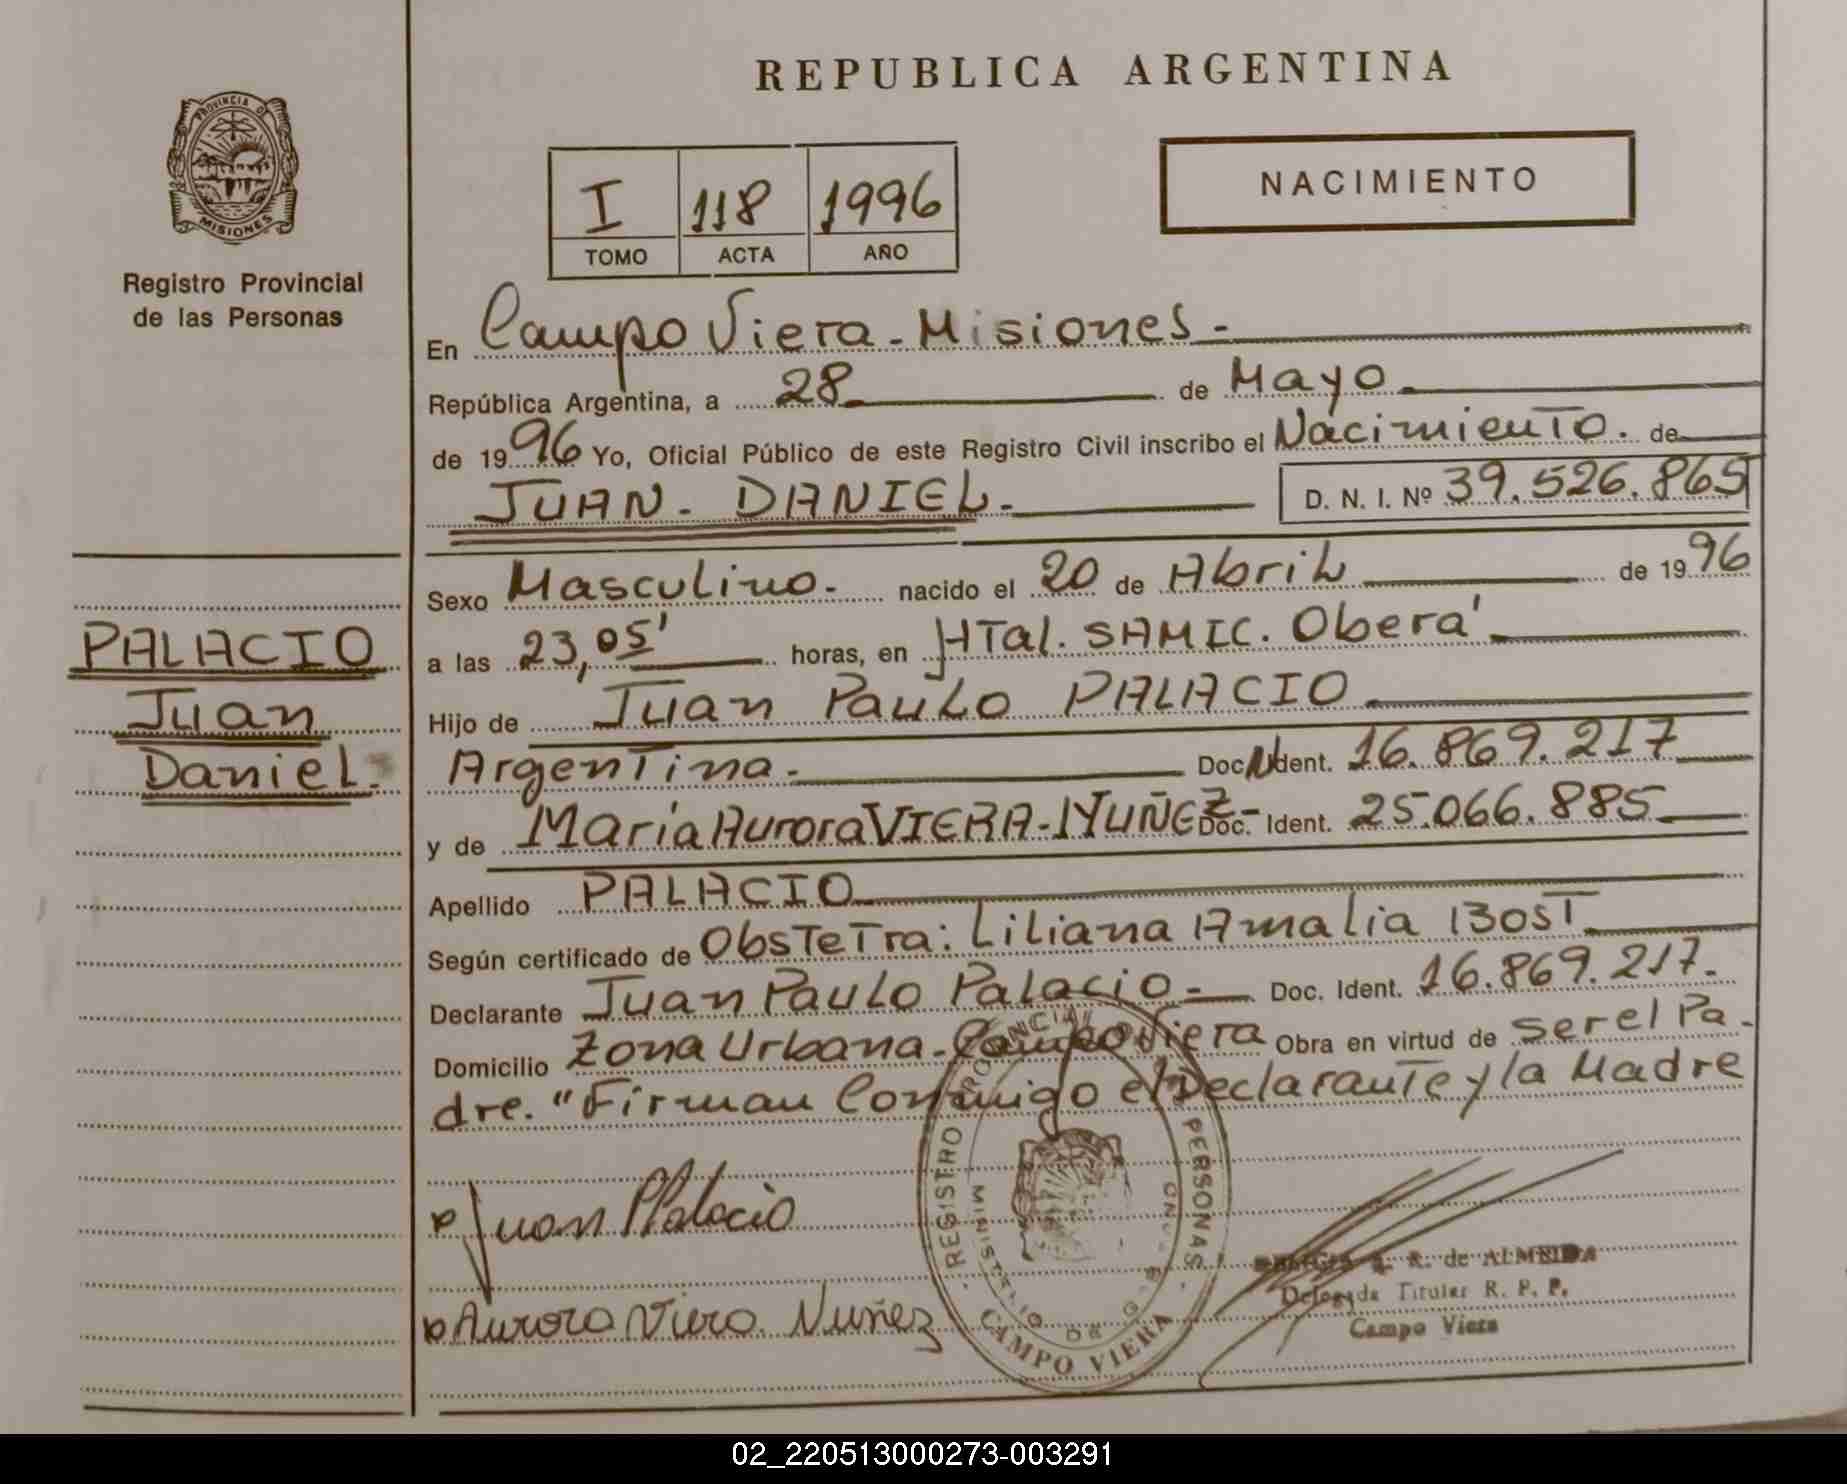 REPUBLICA ARGENTINA
PROVINCIA D
MISIONES
Registro Provincial
de las Personas
I 118 1996
TOMO ACTA AÑO
NACIMIENTO
En Campo Viera - Misiones -
República Argentina, a 28 de Mayo
de 1996 Yo, Oficial Público de este Registro Civil inscribo el Nacimiento. de
JUAN - DANIEL - D. N. I. Nº 39.526.865
Sexo Masculino - nacido el 20 de Abril de 1996
a las 23,05' horas, en HTal. SAMIC. Oberá
Hijo de Juan Paulo PALACIO
Argentina - Doc. N Ident. 16.869.217
y de María Aurora VIERA - NUÑEZ - Doc. Ident. 25.066.885
Apellido PALACIO
Según certificado de Obstetra: Liliana Amalia BOST
Declarante Juan Paulo Palacio - Doc. Ident. 16.869.217.
Domicilio Zona Urbana - Campo Viera Obra en virtud de ser el Pa-
dre. "Firman Conmigo el Declarante y la Madre
PALACIO
Juan
Daniel.
Juan P Palacio
Aurora Viera Nuñez
REGISTRO PROVINCIAL PERSONAS
MINISTERIO DE GOB
CAMPO VIERA
R. de ALMEIDA
Delegada Titular R. P. P.
Campo Viera
02_220513000273-003291